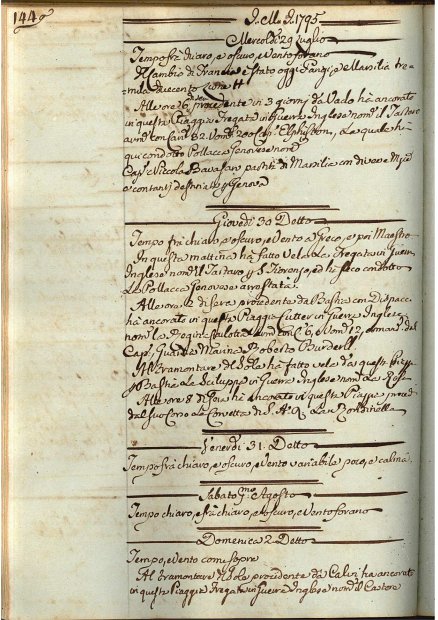 144
1795
Mercoldì 29 Luglio
Tempo frà chiaro, e oscuro, e Vento forano
Il Cambio di Francia è stato oggi Parigi, e Marsilia tre-
mila duecento
Alle ore 6 procedente in 3 giorni da Vado hà ancorato
in questa Piaggia Fregata in Guerra Inglese nom. il Tartaro
arm. con Can. 82. Cap. Elphiston, la quale hà
qui condotto Pollacca Genovese nom.
Cap. Niccola Bavassar di Marsilia con diverse
e contanti per Genova
Giovedì 30 Detto
Tempo frà chiaro, e oscuro, e Vento a Greco, e poi Maestro
In questa mattina hà fatto Vela la Fregata in Guerra
Inglese nom. il Tartaro p S. Fiorenzo, ed hà seco condotto
la Pollacca Genovese arrestata.
Alle ore 2 di sera procedente da Bastia con Dispacci
hà ancorato in questa Piaggia Cutter in Guerra Inglese
nom. la Regina arm. con C. 6, Nom. 12, coman. dal
Cap. Marina Roberto
Al Tramontare del Sole hà fatto vela da questa Piaggia
p Bastia la Scialuppa in Guerra Inglese nom. la Rosa
Alle ore 8 di hà Ancorato in questa Piaggia proced.
dal suo Corso la Corvetta di S. A. R. La Rondinella
Venerdì 31. Detto
Tempo frà chiaro, e oscuro, e Vento variabile poco, e calma.
Sabato Pmo Agosto
Tempo chiaro, e frà chiaro, e oscuro, e Vento forano
Domenica 2 Detto
Tempo, e Vento come sopra
Al tramontare del Sole procedente da Calvi hà ancorato
in questa Piaggia Fregata in Guerra Inglese nom. il Castore